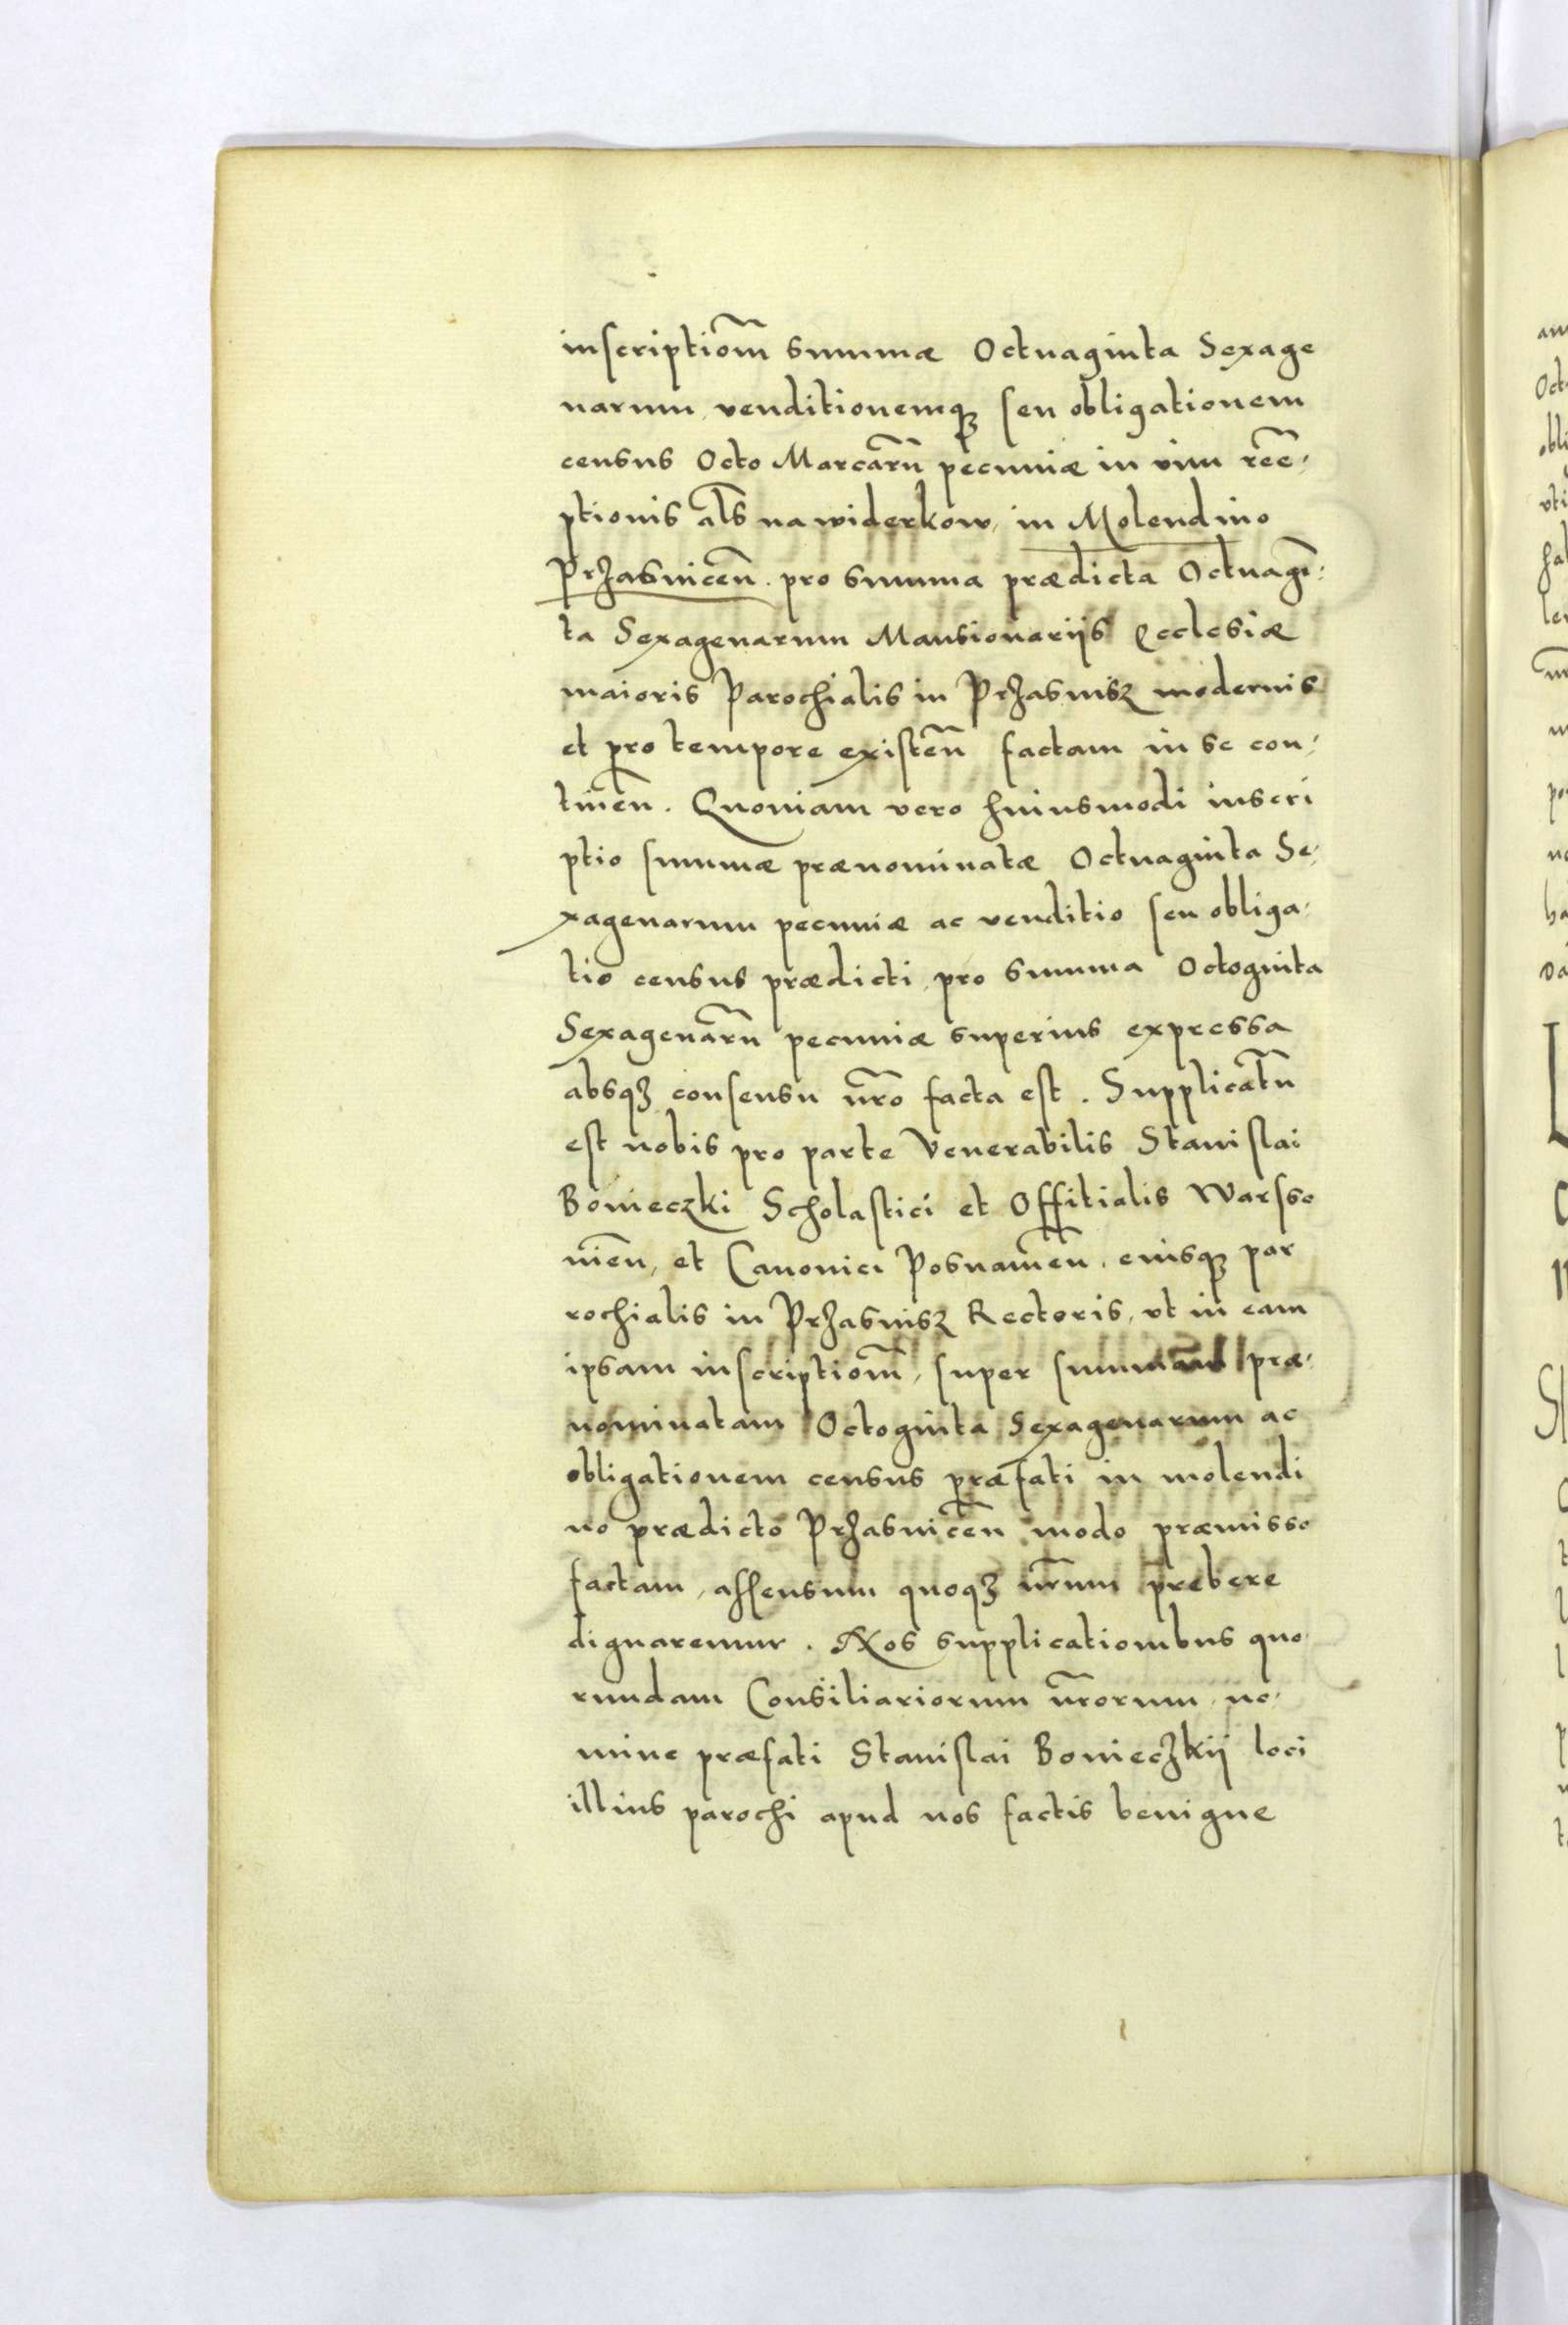 inscriptiom̃ summæ Octuaginta Sexage
narum, venditionemqꝫ seu obligationem
census Octo Marcarũ pecuniæ in vim reẽ-
ptionis als̃ na widerkow, in Molendino
Przasnicen̄. pro summa prædicta Octuagĩ-
ta Sexagenarum Mansionariis Ecclesiæ
maioris Parochialis in Przasnisz modernis
et pro tempore existeñ factam in se con-
tineñ. Quoniam vero huiusmodi inscri
ptio summæ prænominatæ Octuaginta Se-
xagenarum pecuniæ ac venditio seu obliga-
tio census prædicti, pro summa Octoginta
Sexagenarũ pecuniæ superius expressa
absqꝫ consensu ñro facta est. Supplicatũ
est nobis pro parte Venerabilis Stanislai
Bonieczki Scholastici et Offitialis Warsso
nieñ, et Canonici Posnanieñ. eiusqꝫ par
rochialis in Przasnisz Rectoris, vt in eam
ipsam inscriptiom̃, super summam præ-
nominatam Octoginta Sexagenarum ac
obligationem census præfati in molendi
no prædicto Przasniceñ modo præmisso
factam, assensum quoqꝫ ñrum prebere
dignaremur. Nos supplicationibus quo
rundam Consiliariorum ñrorum, no-
mine præfati Stanislai Bonieczkij loci
illius parochi apud nos factis benigne